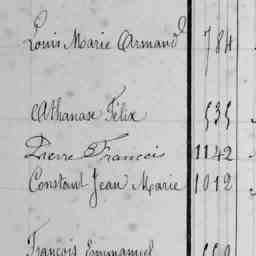 Louis Marie Armand 784
Athanase Félix 535
Pierre Francois 1142
Constant Jean Marie 1012
François Emmanuel